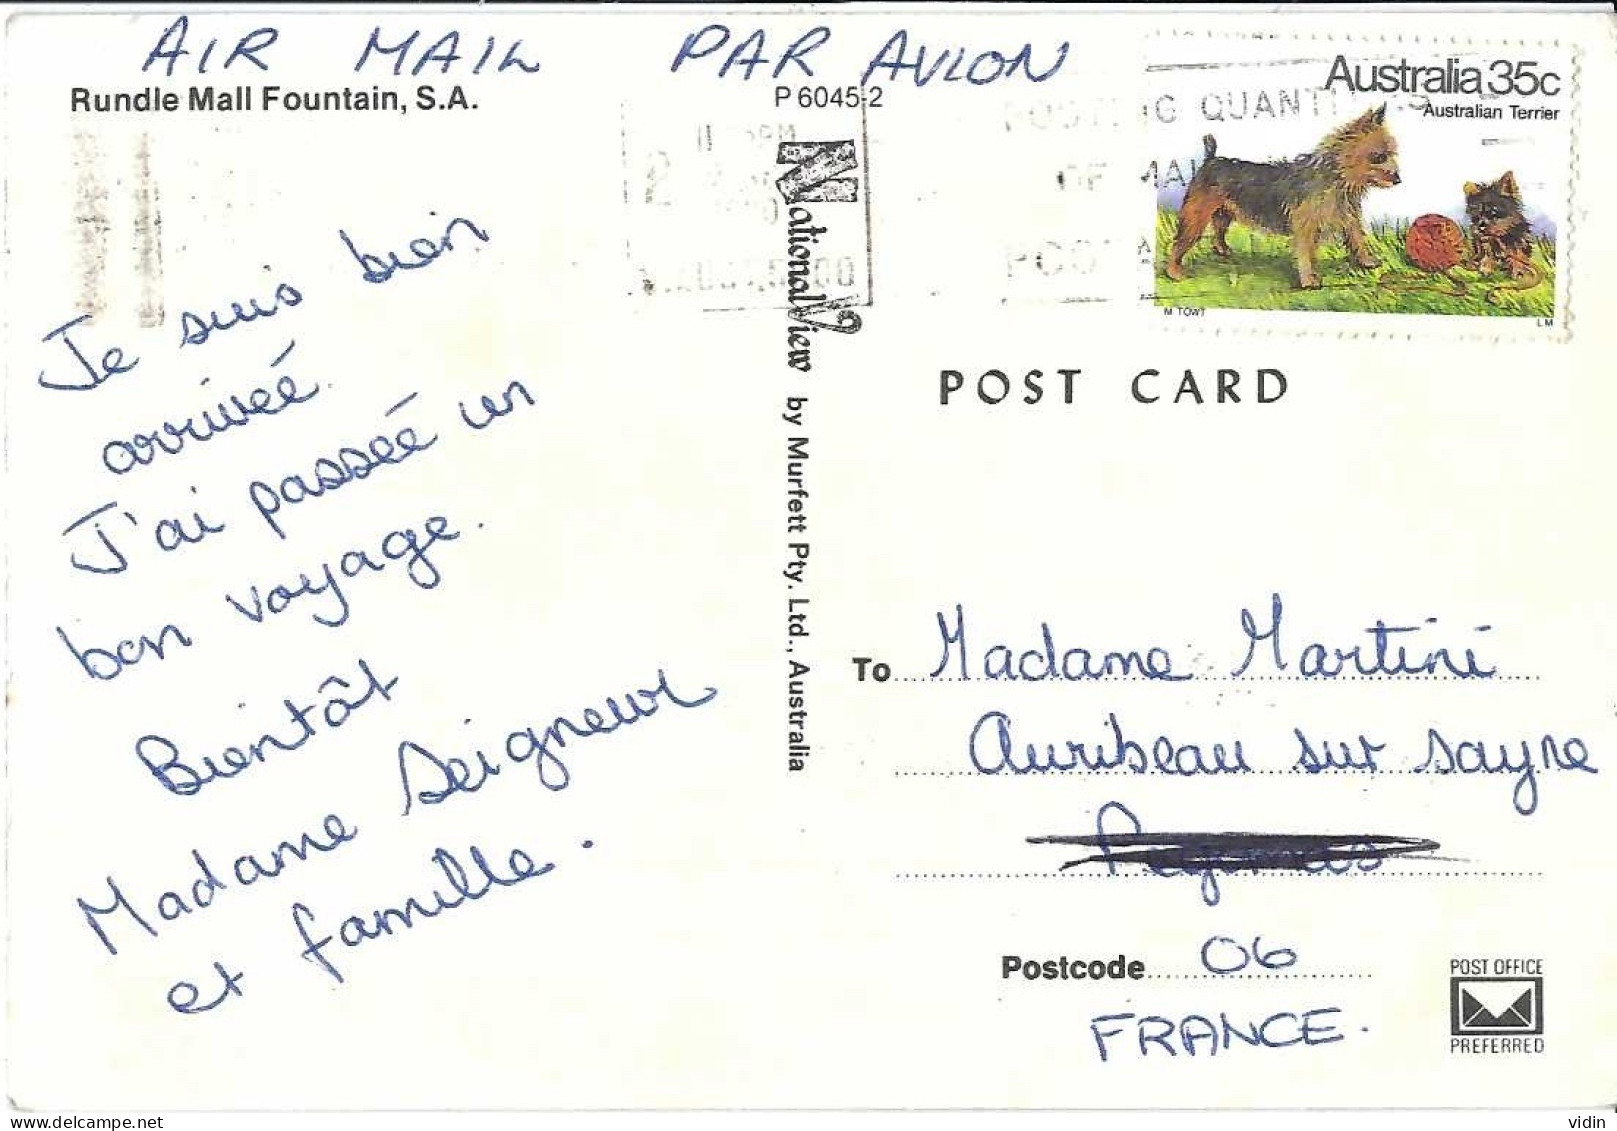 AIR MAIL PAR AVION
Rundle Mall Fountain, S.A.
P 6045-2
Australia 35c
Australian Terrier
QUANTI
OF MAI
M TOWT
LM
National View by Murfett Pty. Ltd., Australia
POST CARD
Je suis bien
arrivéé.
J'ai passéé un
bon voyage.
Bientôt
Madame Seigneur
et famille.
To Madame Martini
Auribeau sur sayne
Pegomas
Postcode 06
FRANCE.
POST OFFICE
PREFERRED
delcampe.net
vidin